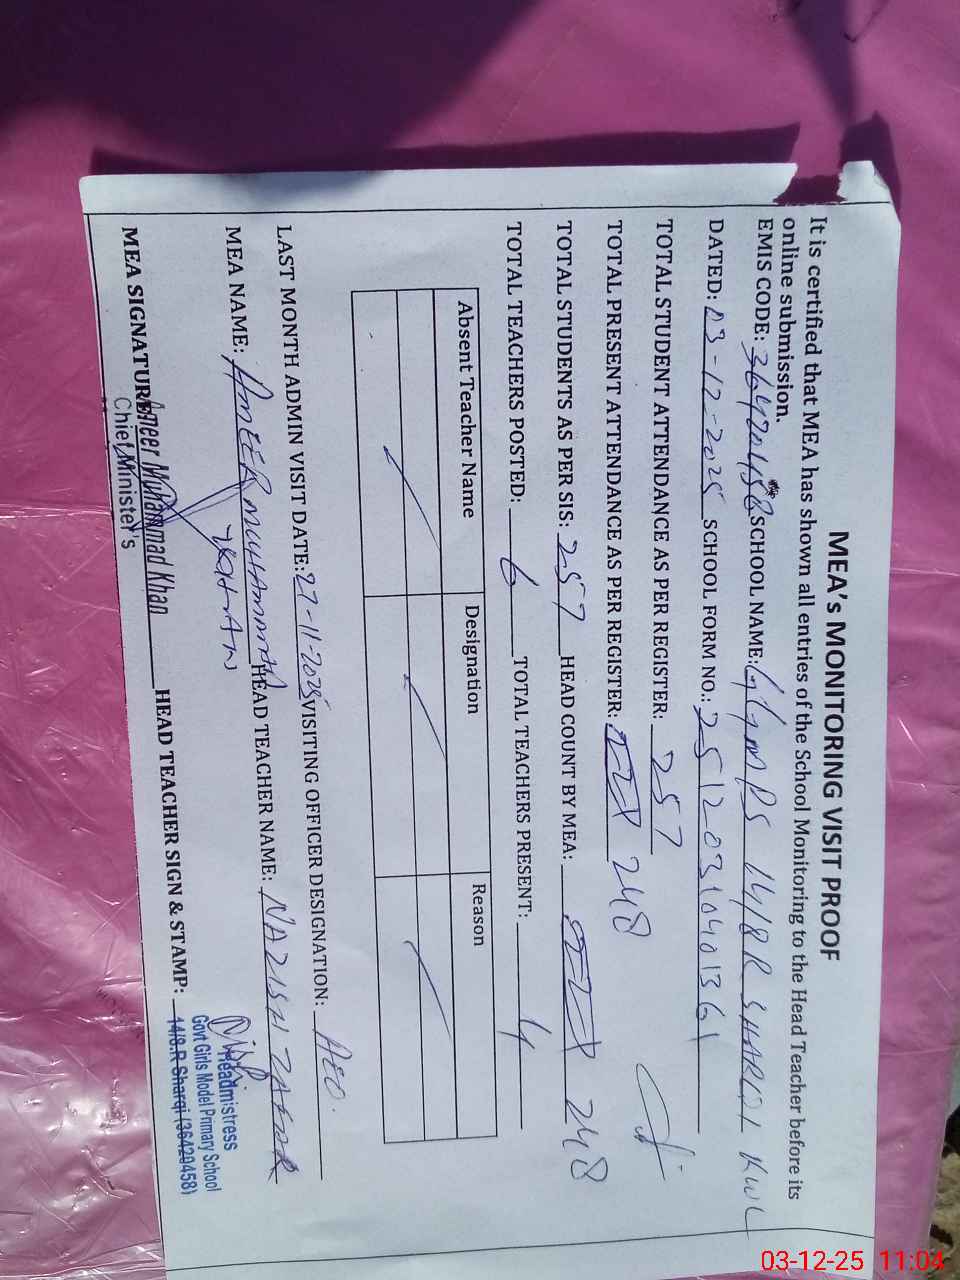 MEA's MONITORING VISIT PROOF
It is certified that MEA has shown all entries of the School Monitoring to the Head Teacher before its
online submission.
EMIS CODE: 36420458 SCHOOL NAME: GGMPS 14/8R SHARQI KWL
DATED: 03-12-2025 SCHOOL FORM NO.: 25120310401361
TOTAL STUDENT ATTENDANCE AS PER REGISTER: 257
TOTAL PRESENT ATTENDANCE AS PER REGISTER: 248
TOTAL STUDENTS AS PER SIS: 257 HEAD COUNT BY MEA: 248
TOTAL TEACHERS POSTED: 6 TOTAL TEACHERS PRESENT: 4
Absent Teacher Name Designation Reason
LAST MONTH ADMIN VISIT DATE: 27-11-2025 VISITING OFFICER DESIGNATION: AEO.
MEA NAME: AMEER MUHAMMAD KHAN HEAD TEACHER NAME: NAZISH ZAFAR
MEA SIGNATURE: Ameer Muhammad Khan HEAD TEACHER SIGN & STAMP:
Chief Minister's
Headmistress
Govt Girls Model Primary School
14/8.R Sharqi (36420458)
03-12-25 11:04